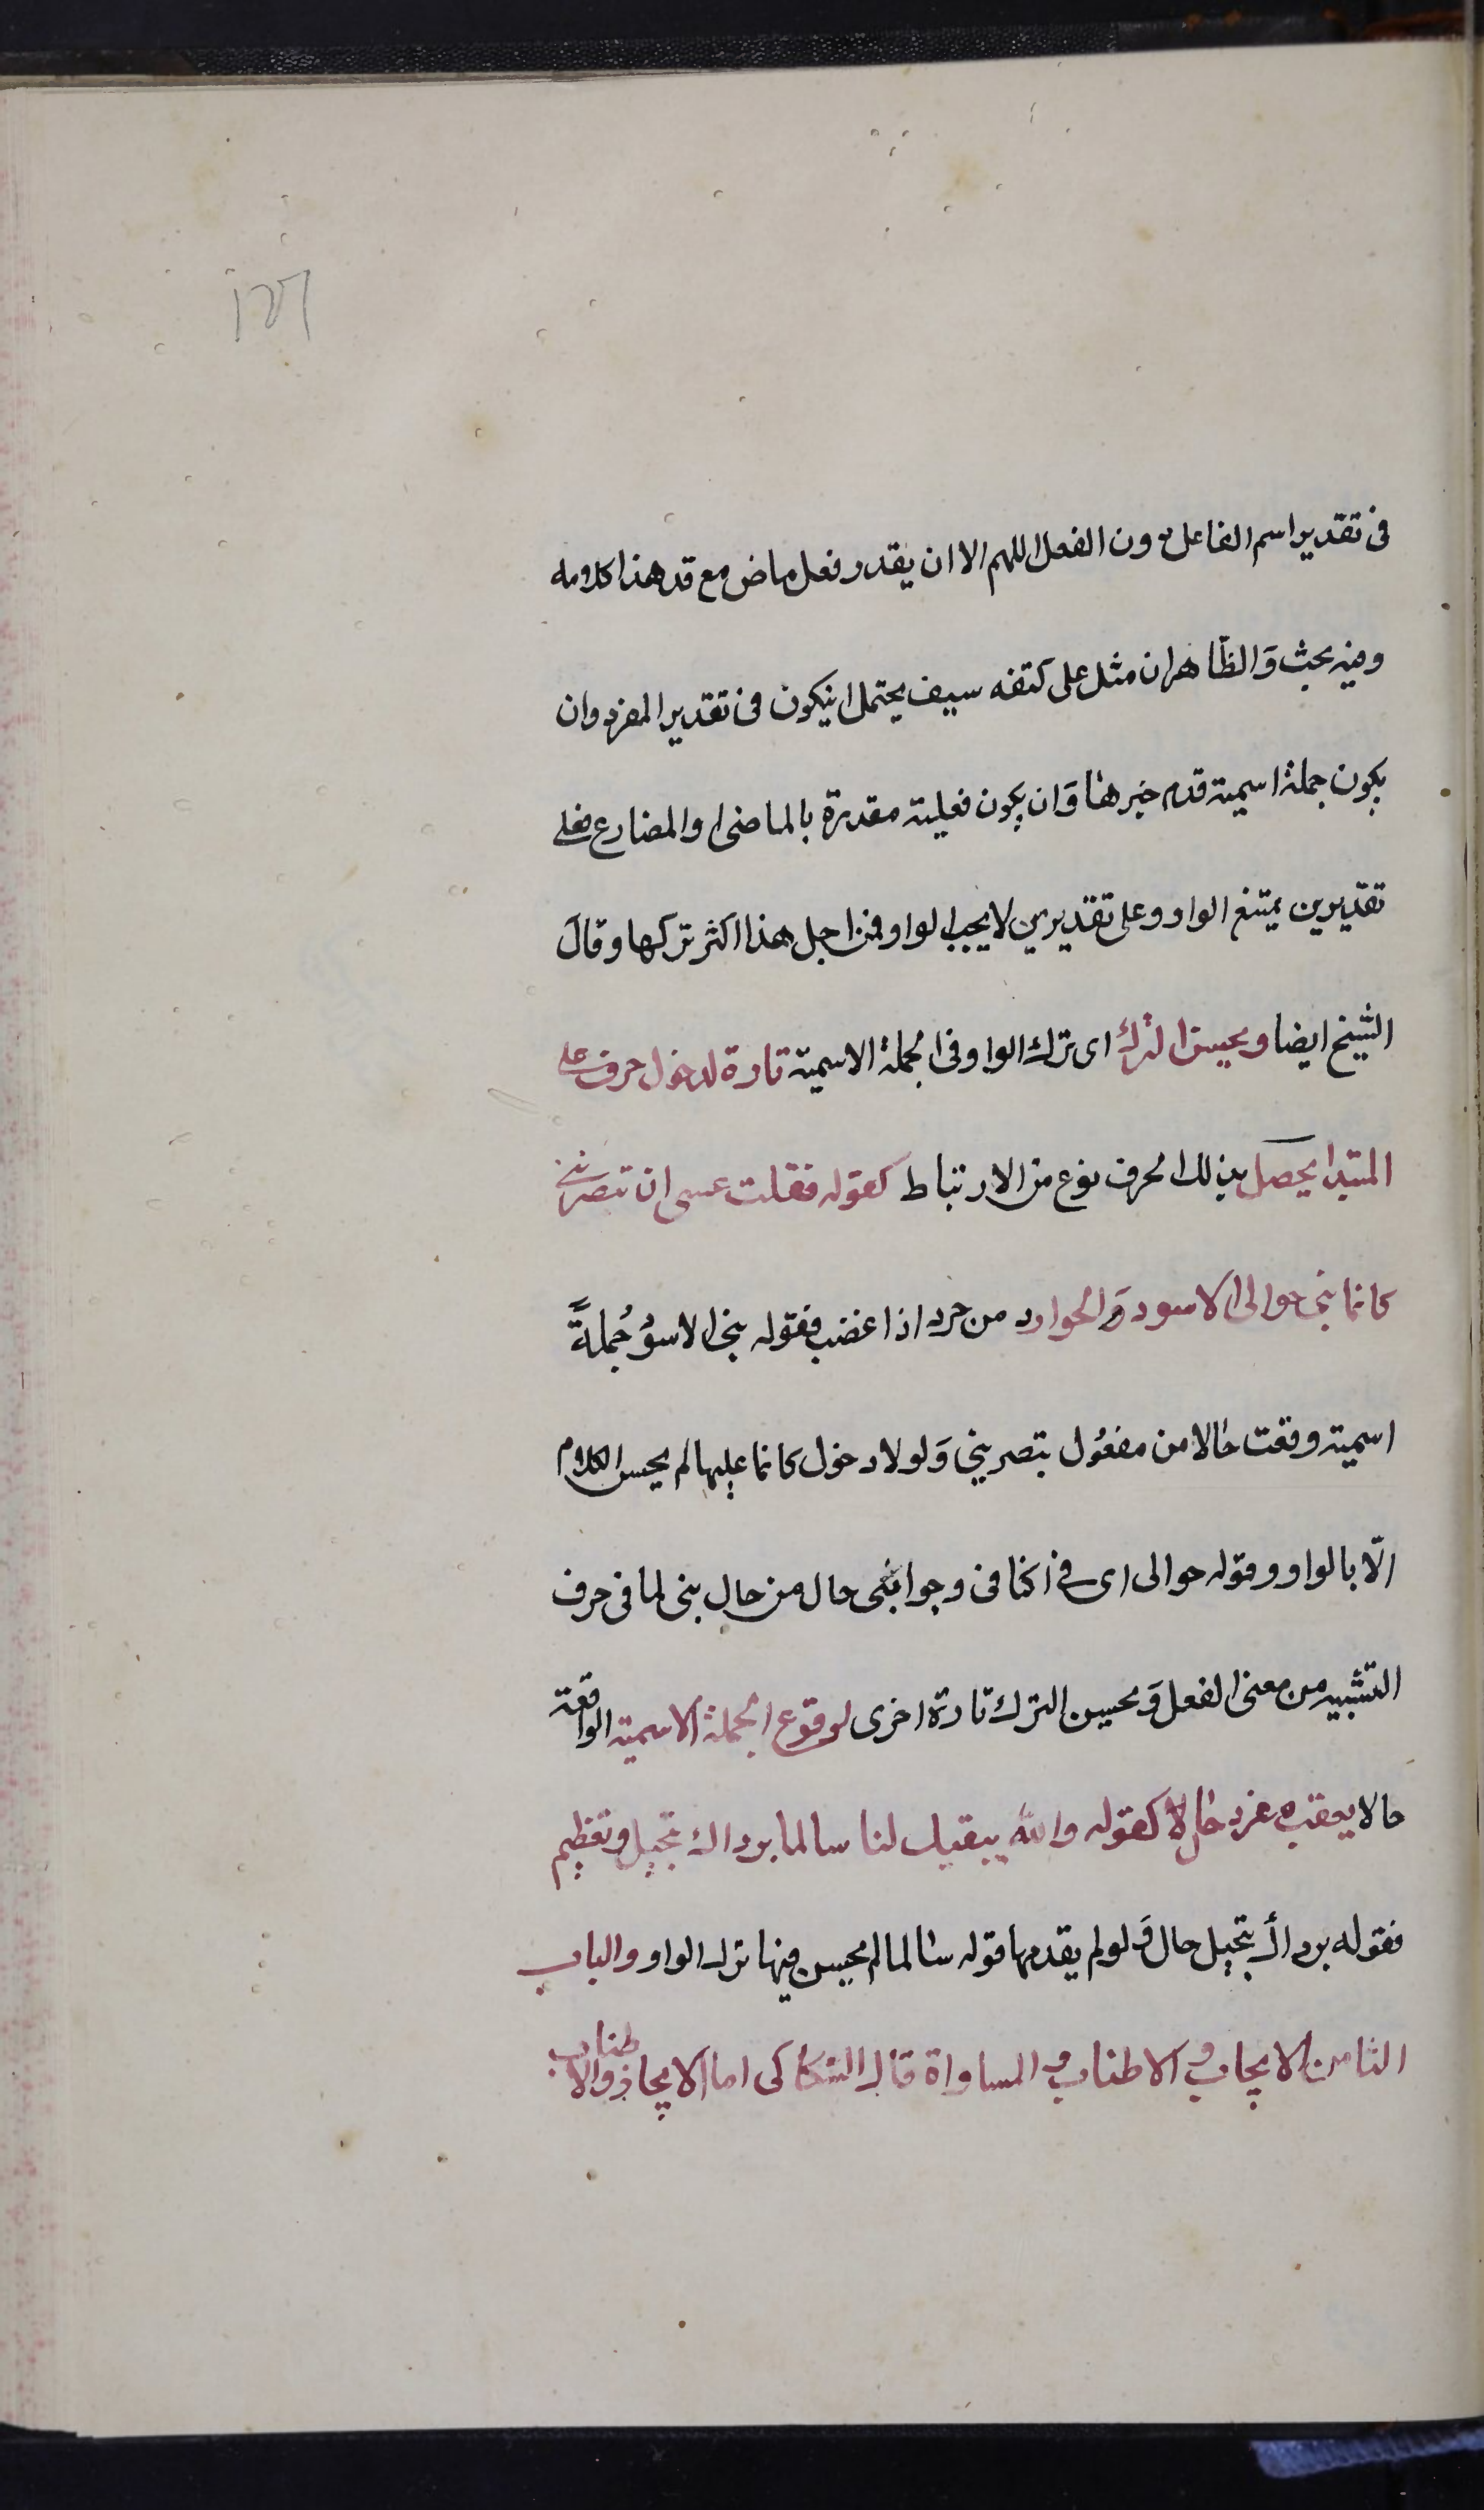 في تقدير اسم الفاعل دون الفعل اللهم الا ان يقدر فعل ماض مع قد هذا كلامه
وفيه بحث وَالظّاهر ان مثل على كتفه سيف يحتمل انيكون في تقدير المفرد وان
يكون جملة اسمية قدم خبرها وَان يكون فعلية مقدرة بالماضي او المضارع فعلى
تقديرين يمتنع الواو وعلى تقديرين لا يجب الواو فمن اجل هذا اكثر تركها وقالَ
الشيخ ايضا ويحسن الترك اى ترك الواو في الجملة الاسمية تارة لدخول حرف على
المبتدا يحصل بذلك الحرف نوع من الارتباط كقوله فقلت عسى ان تبصرينى
كانما بنى حوالى الاسود وَالحوارد من حرد اذا غضب فقوله بنى الاسوُ جُملةً
اسمية وقعت حالا من مفعُول بتصريني وَلولا دخول كانما عليها لم يحسن الكلام
الّا بالواو وقوله حوالى اى في اكنافى وجوانبى حال من حال بنى لما فى حرف
التشبيه من معنى الفعل وَيحسن الترك تارة اخرى لوقوع الجملة الاسمية الواقعة
حالا يعقب مفرد حال لا كقوله والله يبقيك لنا سالما برداك تبجيل وتعظيم
فقوله برداك تبجيل حال وَلو لم يقدمها قوله سالما لم يحسن فيها ترك الواو والباب
الثامن الايجاب و الاطناب و المساواة قال السّكاكى اما الايجاز والاطناب